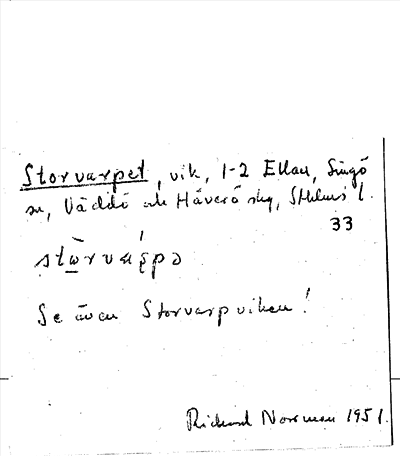 Storvarpet, vik, 1-2 Ellan, Singö
sn, Väddö och Häverö skg, Sthlms l.
33
stòrvá̢rpə
Se även Storvarpviken!
Richard Norrman 1951.